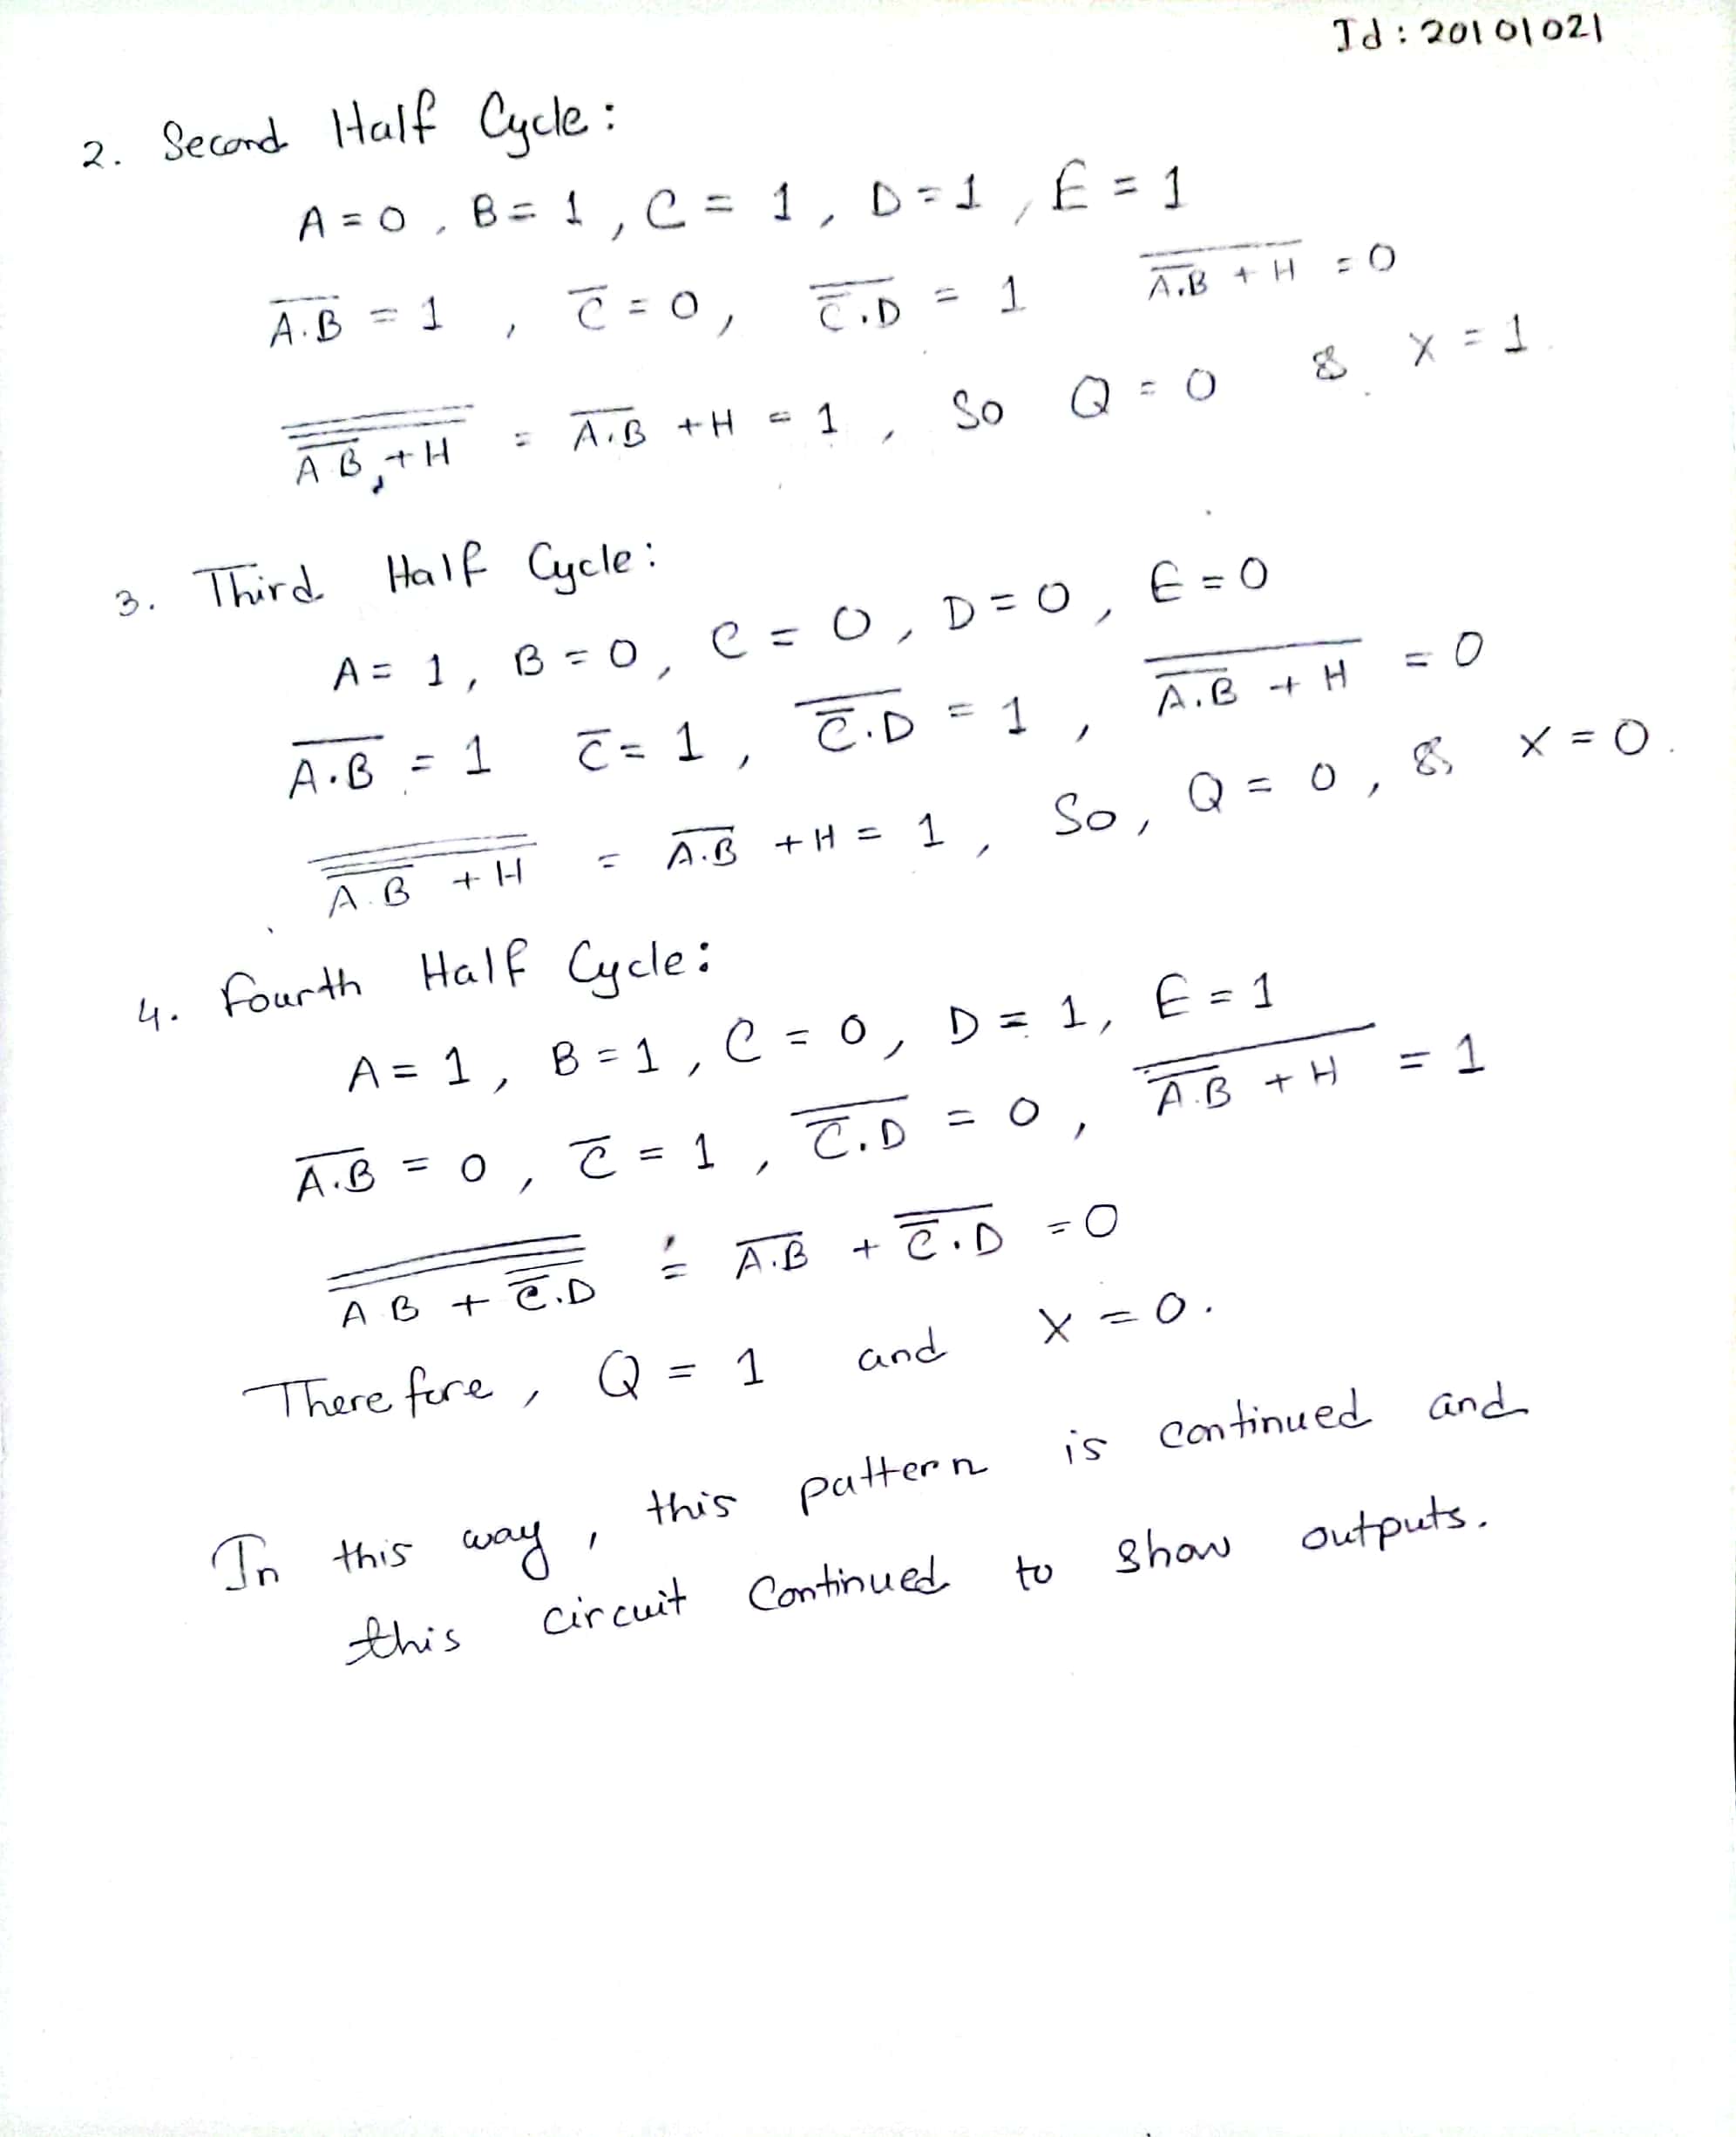 Id : 20101021
2. Second Half Cycle :
A = 0 , B = 1 , C = 1 , D = 1 , E = 1
\overline{A.B} = 1 , \overline{C} = 0 , \overline{\overline{C}.D} = 1 \overline{\overline{A.B} + H} = 0
\overline{\overline{\overline{A B} + H}} = \overline{A.B} + H = 1 , So Q = 0 & X = 1
3. Third Half Cycle :
A = 1 , B = 0 , C = 0 , D = 0 , E = 0
\overline{A.B} = 1 \overline{C} = 1 , \overline{\overline{C}.D} = 1 , \overline{\overline{A.B} + H} = 0
\overline{\overline{\overline{A.B} + H}} = \overline{A.B} + H = 1 , So , Q = 0 , & X = 0 .
4. Fourth Half Cycle :
A = 1 , B = 1 , C = 0 , D = 1 , E = 1
\overline{A.B} = 0 , \overline{C} = 1 , \overline{\overline{C}.D} = 0 , \overline{\overline{A.B} + H} = 1
\overline{\overline{A B + \overline{\overline{C}.D}}} = \overline{A.B} + \overline{\overline{C}.D} = 0
Therefore , Q = 1 and X = 0 .
In this way , this pattern is continued and
this circuit Continued to show outputs.